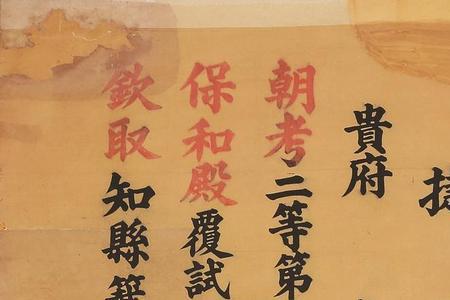 貴府
朝考二等第
保和殿覆試
欽取知縣